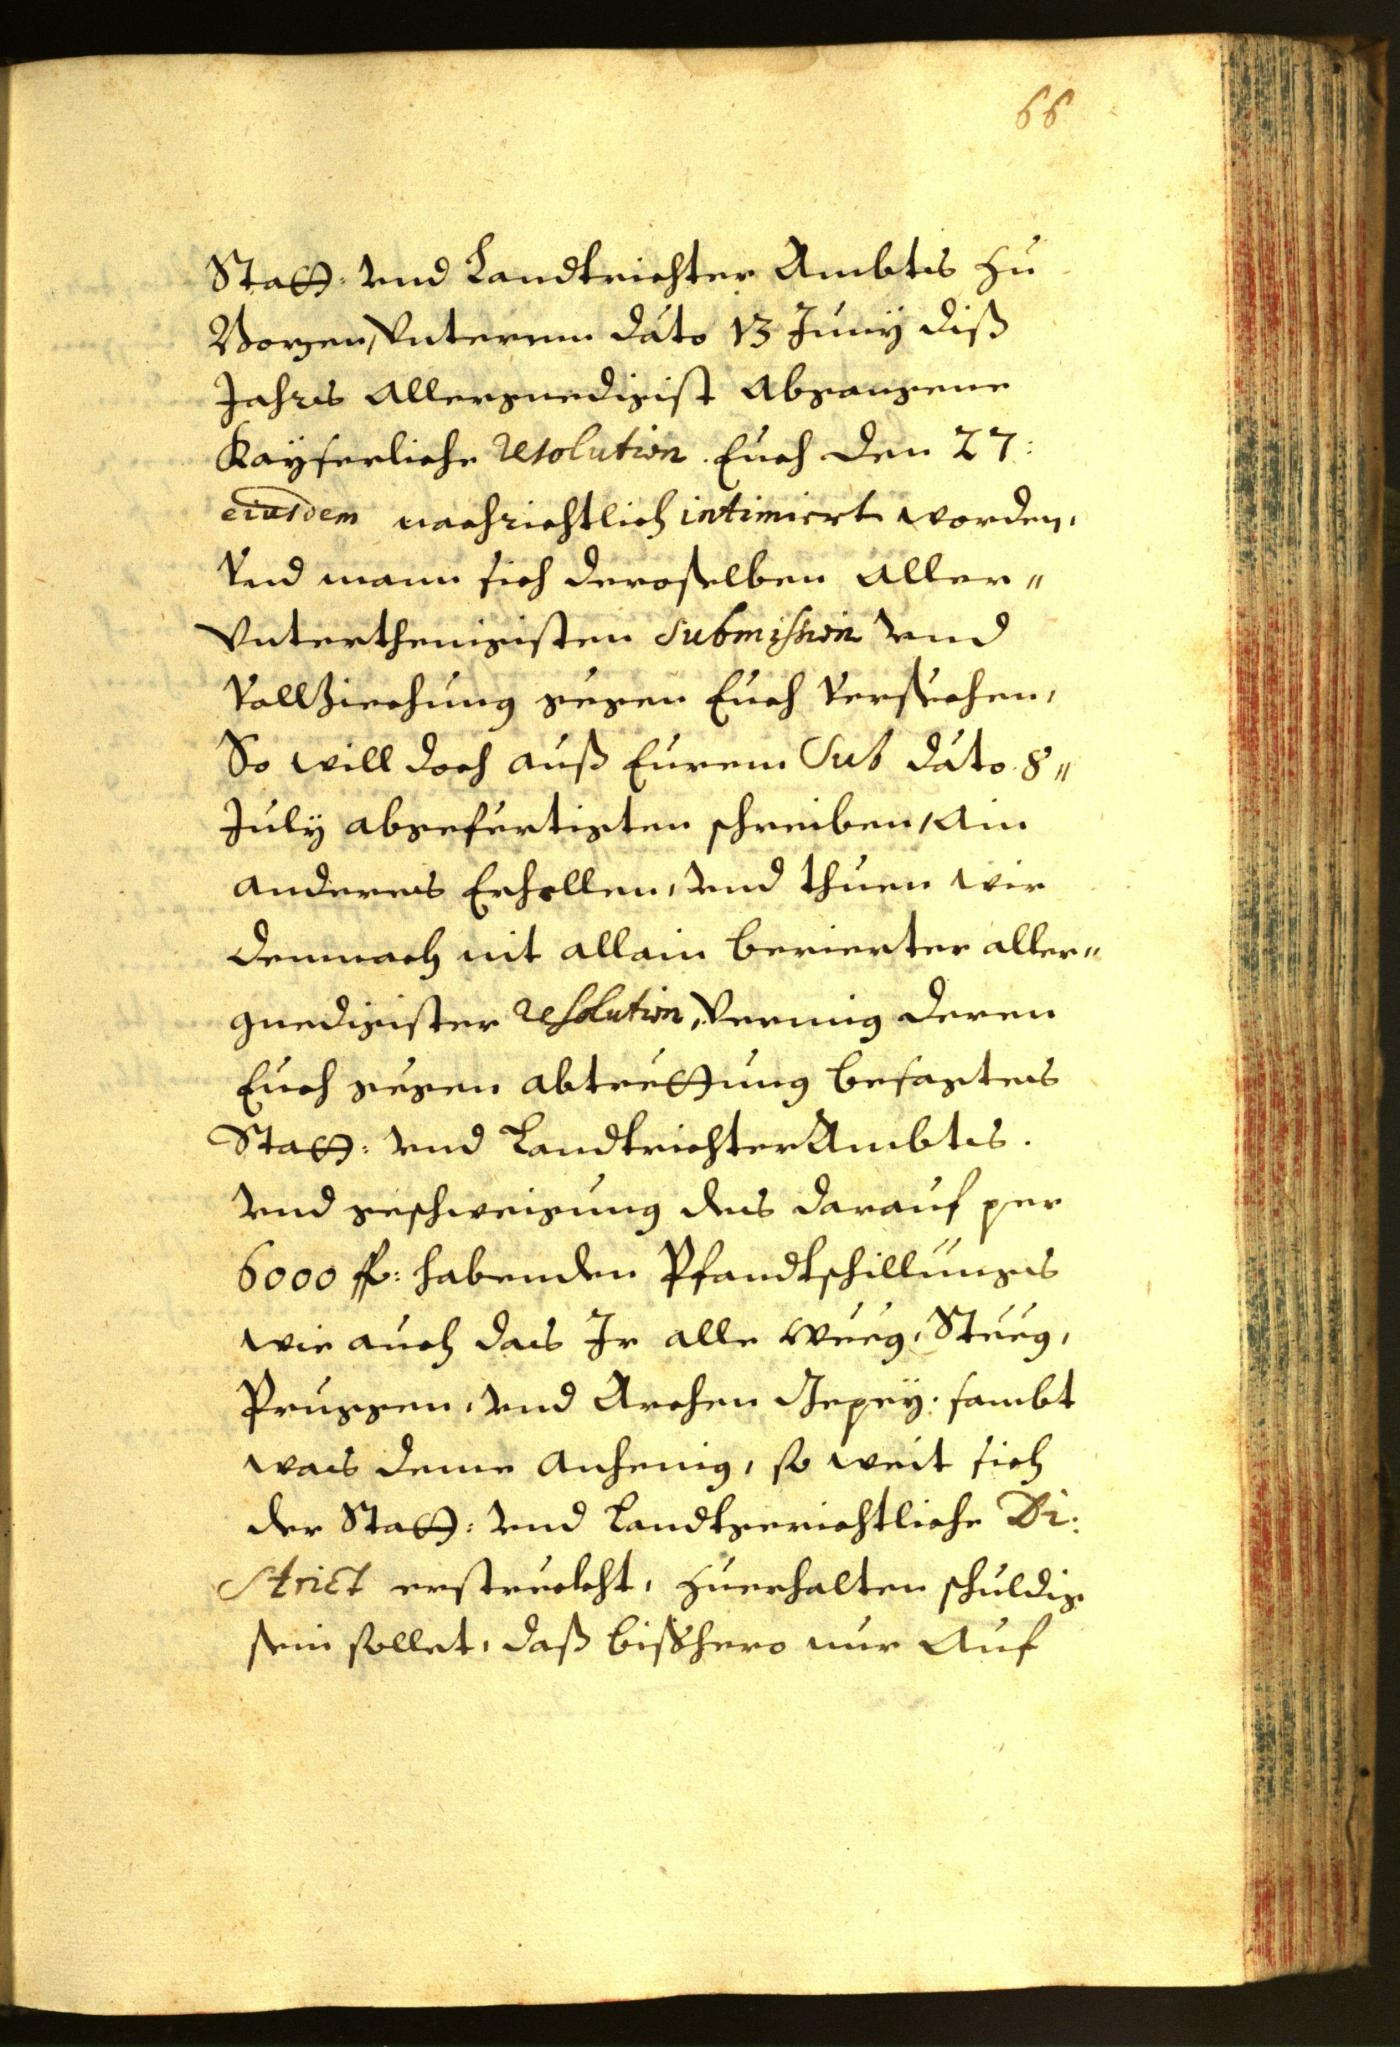 66
Statt: vnd Landtrichter Ambts zu
Bozen, vnterem dato 13 Juny diß
Jahrs allergnedigist abgangene
Kayserliche resolution Euch den 27:
eiusdem nachrichtlich intimiert worden,
vnd mann sich deroselben aller"
vnterthenigisten submission vnd
vollziechung gegen Euch versechen,
So will doch auß Eurem sub dato 8"
July abgefertigten schreiben, ain
anders erhellen, vnd thuen wir
demnach nit allain berierter aller"
gnedigister resolution, vermig deren
Euch gegen abtrettung besagtes
Statt: vnd Landtrichter Ambts.
vnd geschweigung des darauf per
6000 fl: habenden Pfandtschillungs
wie auch das Ir alle Weeg, Steeg,
Pruggen, vnd Archen Gepey. sambt
was deme anhenig, so weit sich
der Statt: vnd Landtgerichtliche Di:
strict erstreckht, zuerhalten schuldig
sein sollet, daß bißhero nur auf